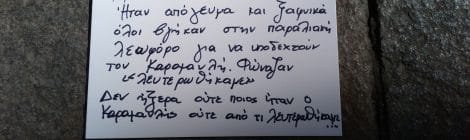 Ήταν απόγευμα και ξαφνικά
όλοι βγήκαν στην παραλιακή
λεωφόρο για να υποδεχτούν
τον Καραμανλή. Φώναζαν
«λευτερωθήκαμε»
Δεν ήξερα ούτε ποιος ήταν ο
Καραμανλής ούτε από τι λευτερωθήκαμε
...